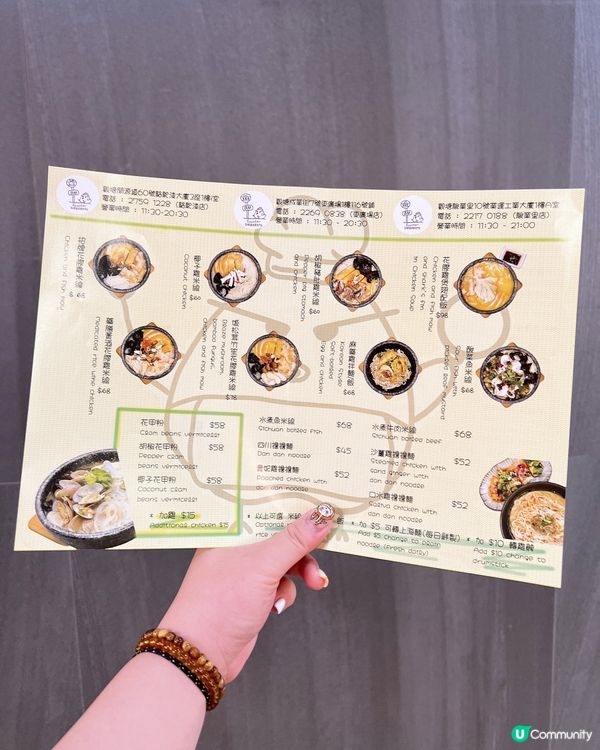 觀塘開源道60號駱駝漆大廈3座1樓室
電話 : 2759 1228 (駱駝漆店)
營業時間 : 11:30-20:30
觀塘成業街7號東廣場1樓116號舖
電話 : 2269 0838 (東廣場店)
營業時間 : 11:30 - 20:30
觀塘駿業里10號業運工業大廈1樓A室
電話 : 2217 0188 (駿業里店)
營業時間 : 11:30 - 21:00
招牌花膠雞米線
Chicken and fish maw
$68
椰子雞米線
Coconut chicken
$60
胡椒豬肚雞米線
Pepper pig stomach
and chicken
$60
花膠雞煲翅配飯
Chicken and fish maw
and shark's fin
in chicken soup
$98
Medicated rice wine chicken
姬松茸竹笙花膠雞米線
Blaze mushroom,
bamboo fungus,
chicken and fish maw
$78
麻醬雞拌麵
Korean style
soft-boiled
egg and chicken
酸菜魚米線
Sour fish with
pickled leaf mustard
$68
花甲粉 $58
Clam beans vermicelli
胡椒花甲粉 $58
Pepper clam
beans vermicelli
椰子花甲粉 $58
Coconut clam
beans vermicelli
* 加雞 $15
Additional chicken $15
水煮魚米線 $68
Sichuan boiled fish
四川擔擔麵 $45
Dan dan noodle
貴妃雞擔擔麵 $52
Poached chicken with
dan dan noodle
* 以上可選 米線
飯
Optional
水煮牛肉米線 $68
Sichuan boiled beef
沙薑雞擔擔麵 $52
Steamed chicken with
sand ginger with
dan dan noodle
口水雞擔擔麵 $52
Saliva chicken with
dan dan noodle
* 加 $5 可轉上海麵(每日鮮製)
Add $5 change to
noodle (fresh daily)
* 加 $10 轉雞髀
Add $10 change to
drumstick
U Community